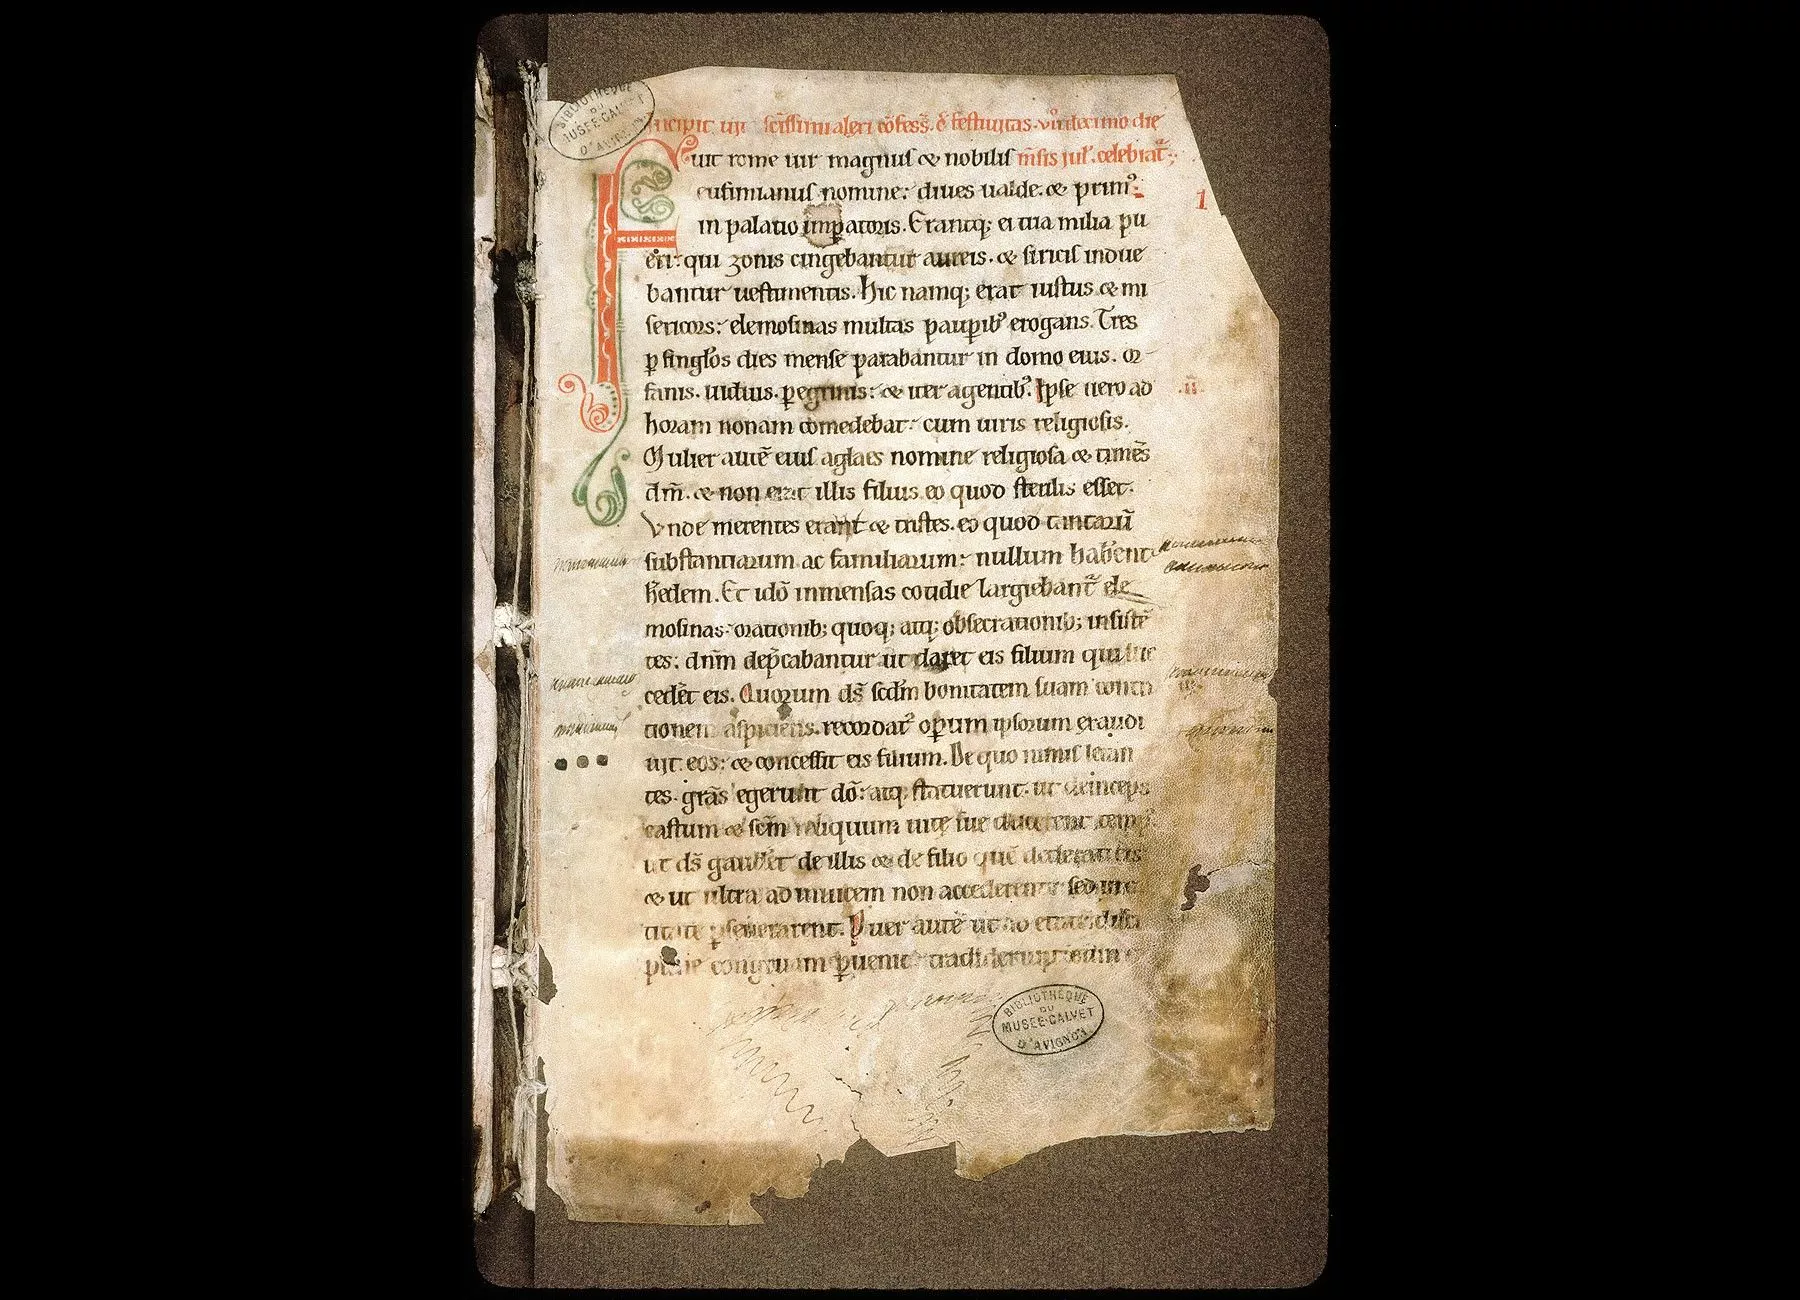 BIBLIOTHÈQUE
DU
MUSÉE-CALVET
D'AVIGNON
Incipit uita sc̄issimi alexi cōfess̄. cuius festiuitas
mēsis jul̄. celebrat᷑
Fuit rome uir magnus & nobilis
eufimianus nomine: diues ualde. & prim᷒
in palatio imꝑatoris. Erantq; ei tria milia pu
I
eri: qui zonis cingebantur aureis. & siricis indue
bantur uestimentis. Hic namq; erat iustus & mi
sericors: elemosinas multas pauꝑib᷒ erogans. Tres
ꝑ singlōs dies mense parabantur in domo eius. or
fanis. uiduis. ꝑegrinis: & iter agentib᷒. Ipse uero ad
.ii.
horam nonam comedebat: cum uiris religiosis.
Mulier autē eius aglaes nomine religiosa & timēs
dm̄. & non erat illis filius. eo quod sterilis esset.
Vnde merentes erant & tristes. eo quod tantarū
substantiarum ac familiarum: nullum habent
h̄edem. Et idō inmensas cotidie largiebant᷑ ele
mosinas: orationib; quoq; atq; obsecrationib; insistē
tes: dnm̄ dep̄cabantur ut daret eis filium qui suc
cedēt eis. Quorum ds̄ scdm̄ bonitatem suam contri
tionem aspiciens. recordat᷑ oꝑum ipsorum exaudi
uit eos: & concessit eis filium. De quo nimis letan
tes. grās egerunt dō: atq; statuerunt. ut deinceps
castum & scm̄ reliquum uitę sue ducerent temp᷒
ut ds̄ gauderet de illis & de filio quē dederat eis
& ut ultra ad inuicem non accederent: sed in ca
titate ꝑseuerarent. Puer autē ut ad etatē disci
pline congruam ꝑuenit tradiderunt eum
BIBLIOTHÈQUE
DU
MUSÉE-CALVET
D'AVIGNON